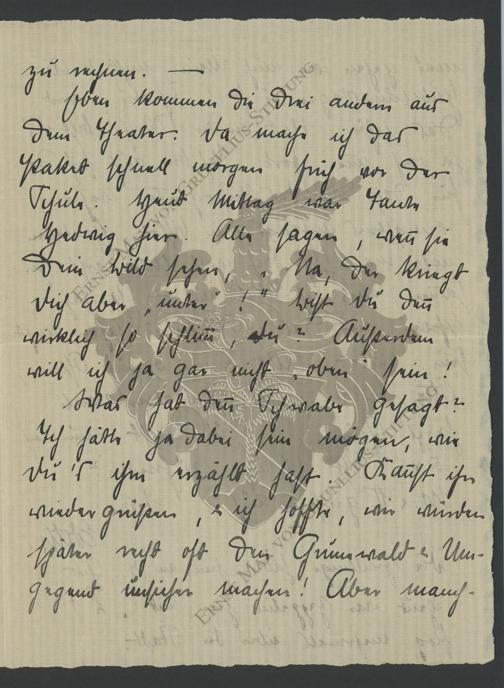 zu rechnen. —
Eben kommen die drei andern aus
dem Theater. Da mache ich das
Paket schnell morgen früh vor der
Schule. Heut Mittag war Tante
Hedwig hier. Alle sagen, wenn sie
Dein Bild sehen, „Na, der kriegt
Dich aber „unter“!“ Bist Du denn
wirklich so schlimm, Du? Außerdem
will ich ja gar nicht „oben“ sein!
Was hat denn Schwabe gesagt?
Ich hätte ja dabei sein mögen, wie
Du's ihm erzählt hast. Kannst ihn
wiedergrüßen, & ich hoffte, wir würden
später recht oft den Grunewald & Um-
gegend unsicher machen! Aber manch-
ERNST MAX VON CORNELIUS-STIFTUNG
ERNST MAX VON CORNELIUS-STIFTUNG